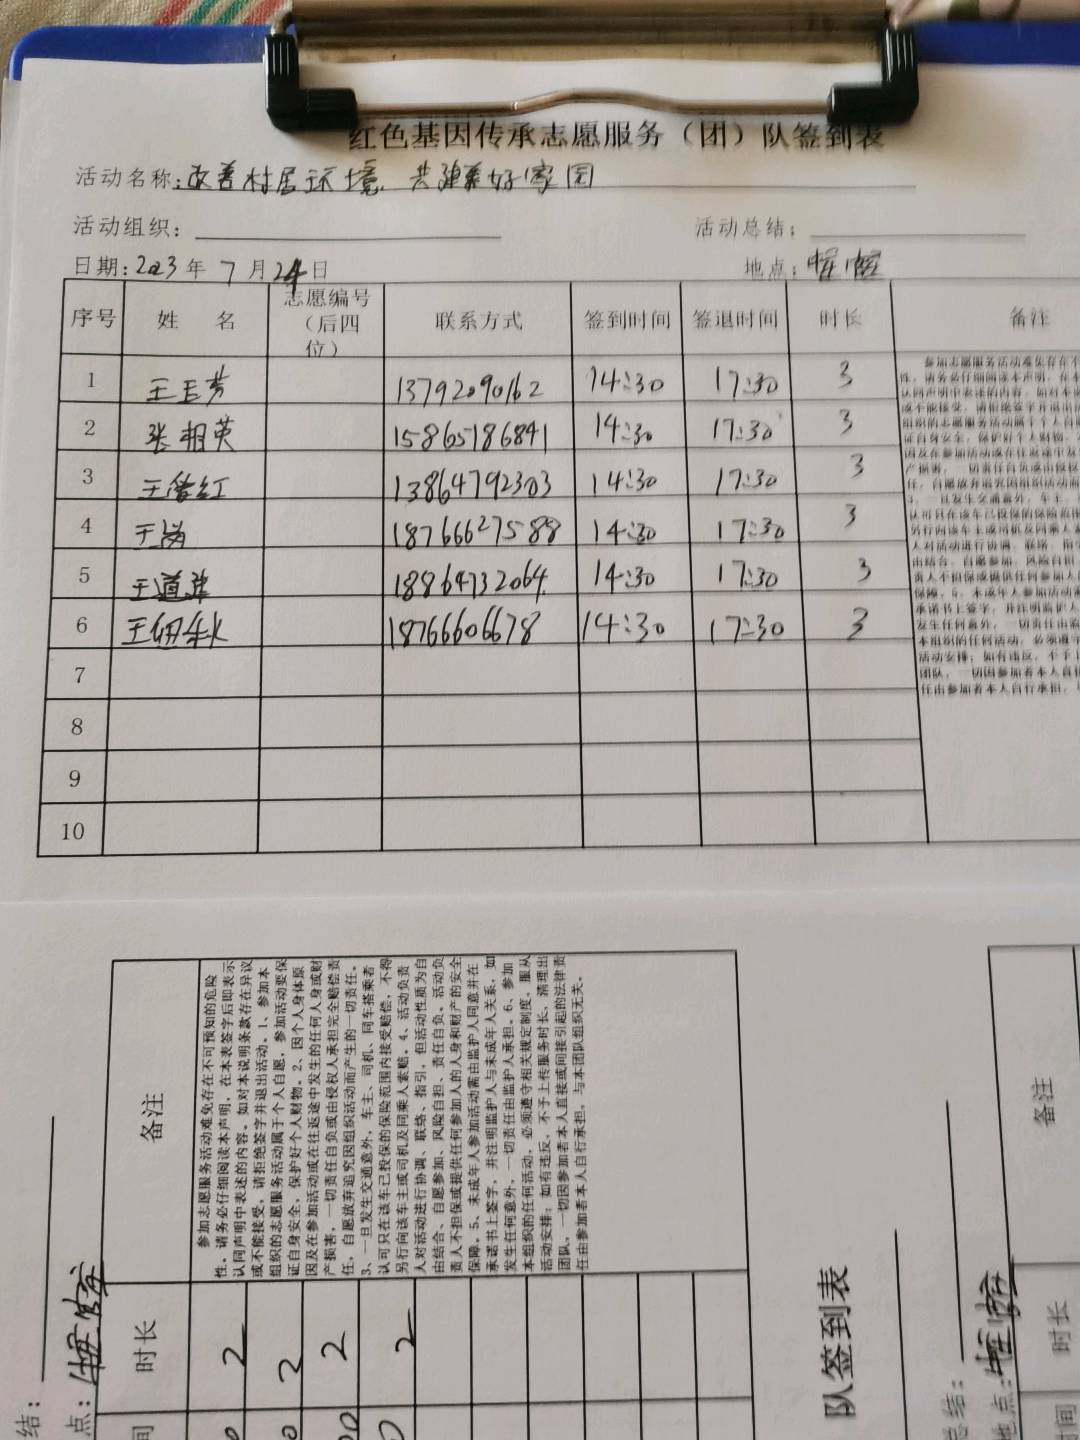 红色基因传承志愿服务（团）队签到表
活动名称：改善村居环境 共建美好家园
活动组织：
活动总结：
日期：2023年7月24日
地点：
序号 姓 名 志愿编号（后四位） 联系方式 签到时间 签退时间 时长 备注
1 王玉芳 13792090162 14:30 17:30 3
2 张相英 15865186841 14:30 17:30 3
3 王红 13864792303 14:30 17:30 3
4 王 18766627588 14:30 17:30 3
5 王道 18864732064 14:30 17:30 3
6 王秋 18766606678 14:30 17:30 3
7
8
9
10
参加志愿服务活动难免存在不
性，请务必仔细阅读本声明，在本
认同声明中表述的内容，如对本
或不能接受，请拒绝签字并退出
组织的志愿服务活动属于个人自
证自身安全，保护好个人财物。
因及在参加活动或在往返途中发
产损害，一切责任自负或由侵权
任，自愿放弃追究因组织活动而
3、一旦发生交通意外，车主、
认可只在该车已投保的保险范围
另行向该车主或司机及同乘人索
人对活动进行协调、联络、指
由结合、自愿参加、风险自担、
责人不担保或提供任何参加人
保障。5、未成年人参加活动需
承诺书上签字，并注明监护人
发生任何意外，一切责任由监
本组织的任何活动，必须遵守
活动安排；如有违反，不予上
团队，一切因参加者本人直接
任由参加者本人自行承担，
结：
点：
备注
参加志愿服务活动难免存在不可预知的危险
性，请务必仔细阅读本声明，在本表签字后即表示
认同声明中表述的内容，如对本说明条款存在异议
或不能接受，请拒绝签字并退出活动。1、参加本
组织的志愿服务活动属于个人自愿，参加活动要保
证自身安全，保护好个人财物。2、因个人身体原
因及在参加活动或在往返途中发生的任何人身或财
产损害，一切责任自负或由侵权人承担完全赔偿责
任，自愿放弃追究因组织活动而产生的一切责任。
3、一旦发生交通意外，车主、司机、同车搭乘者
认可只在该车已投保的保险范围内接受赔偿，不得
另行向该车主或司机及同乘人索赔。4、活动负责
人对活动进行协调、联络、指引，但活动性质为自
由结合、自愿参加、风险自担、责任自负。活动负
责人不担保或提供任何参加人的人身和财产的安全
保障。5、未成年人参加活动需由监护人同意并在
承诺书上签字，并注明监护人与未成年人关系，如
发生任何意外，一切责任由监护人承担。6、参加
本组织的任何活动，必须遵守相关规定制度，服从
活动安排；如有违反，不予上传服务时长，清理出
团队，一切因参加者本人直接或间接引起的法律责
任由参加者本人自行承担，与本团队组织无关。
时长
2
2
2
2
间
队签到表
总结：
地点：
备注
时长
时间